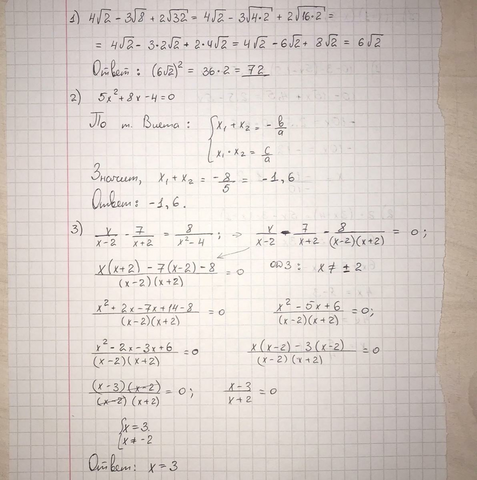 1) 4√2 - 3√8 + 2√32 = 4√2 - 3√(4·2) + 2√(16·2) =
= 4√2 - 3·2√2 + 2·4√2 = 4√2 - 6√2 + 8√2 = 6√2
Ответ: (6√2)² = 36·2 = 72
2) 5x² + 8x - 4 = 0
По т. Виета: { x₁ + x₂ = -b/a
x₁ · x₂ = c/a
Значит, x₁ + x₂ = -8/5 = -1,6
Ответ: -1,6.
3) x/(x-2) - 7/(x+2) = 8/(x²-4); ⇒ x/(x-2) - 7/(x+2) - 8/((x-2)(x+2)) = 0;
(x(x+2) - 7(x-2) - 8)/((x-2)(x+2)) = 0 ОДЗ: x ≠ ±2
(x² + 2x - 7x + 14 - 8)/((x-2)(x+2)) = 0 (x² - 5x + 6)/((x-2)(x+2)) = 0;
(x² - 2x - 3x + 6)/((x-2)(x+2)) = 0 (x(x-2) - 3(x-2))/((x-2)(x+2)) = 0
((x-3)(x-2))/((x-2)(x+2)) = 0; (x-3)/(x+2) = 0
{ x = 3
x ≠ -2
Ответ: x = 3